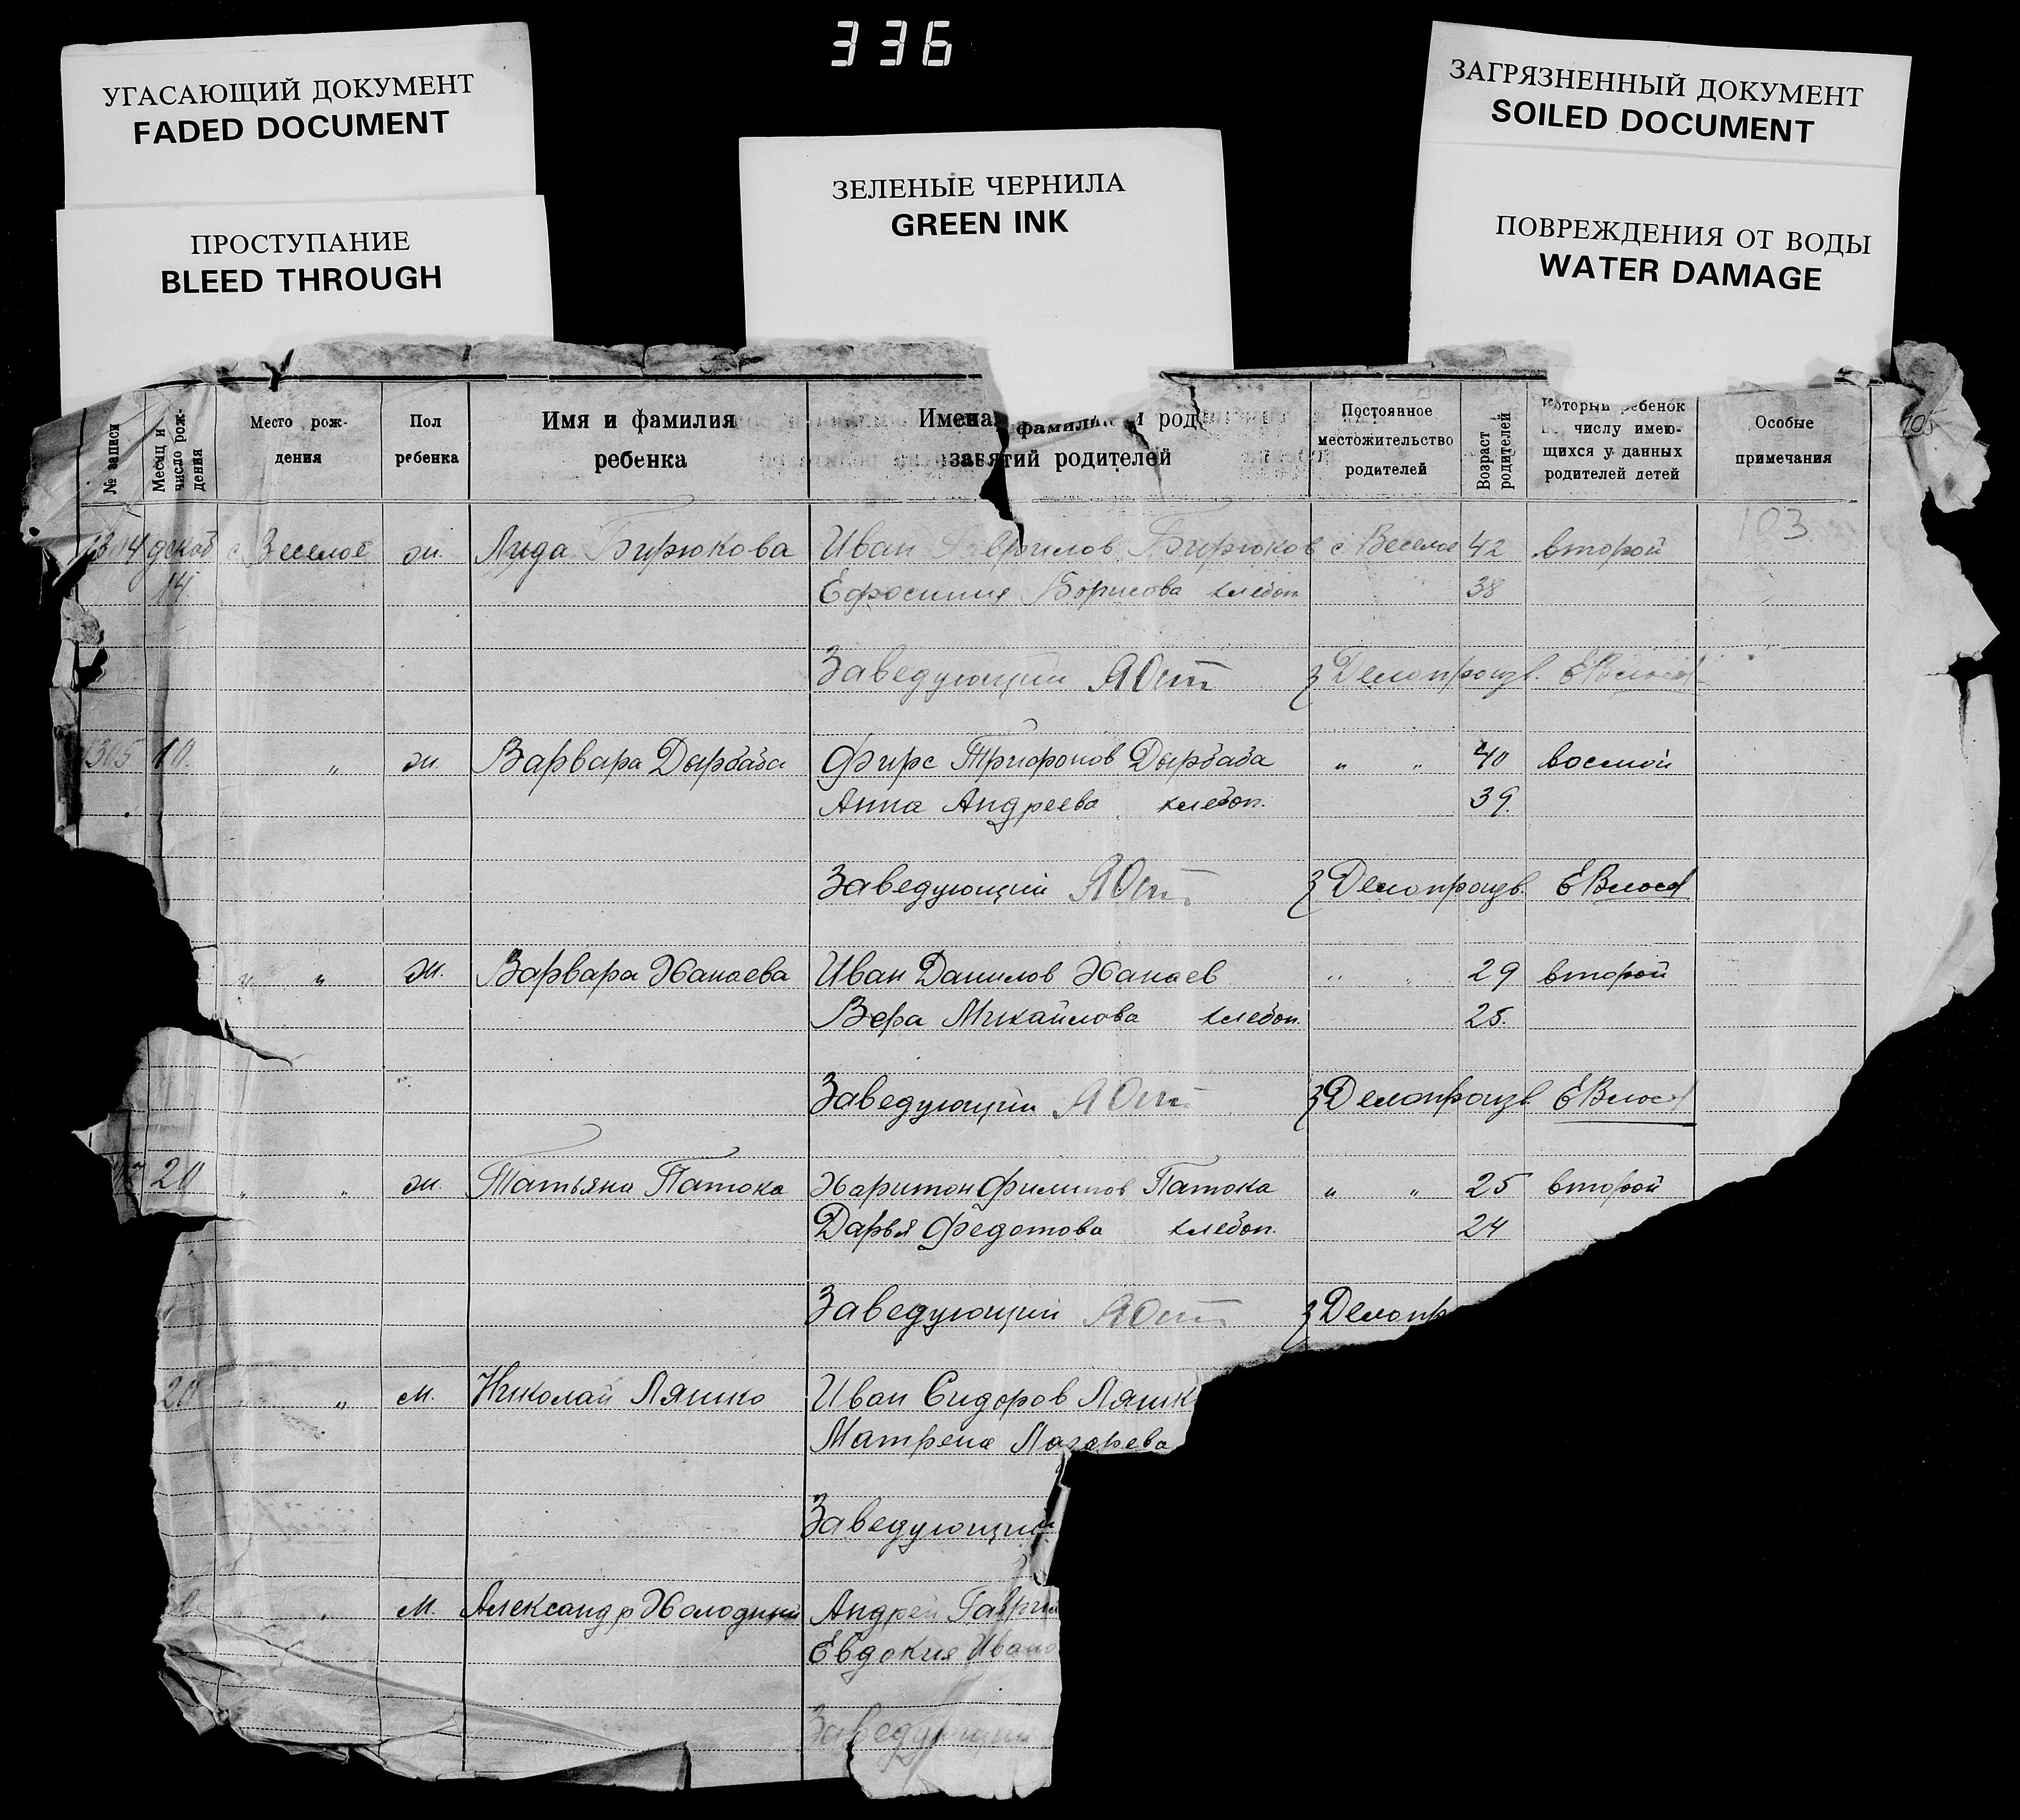 336
УГАСАЮЩИЙ ДОКУМЕНТ
FADED DOCUMENT
ПРОСТУПАНИЕ
BLEED THROUGH
ЗЕЛЕНЫЕ ЧЕРНИЛА
GREEN INK
ЗАГРЯЗНЕННЫЙ ДОКУМЕНТ
SOILED DOCUMENT
ПОВРЕЖДЕНИЯ ОТ ВОДЫ
WATER DAMAGE
№ записи
Месяц и
число рож-
дения
Место рож-
дения
Пол
ребенка
Имя и фамилия
ребенка
Имена фамилии и род
занятий родителей
Постоянное
местожительство
родителей
Возраст
родителей
Который ребенок
числу имею-
щихся у данных
родителей детей
Особые
примечания
105
103
с Веселое ж. Лида Бирюкова Иван Гаврилов Бирюков с Веселое 42 второй
14 Ефросиния Борисова хлебоп. 38
Заведующий З Делопроизв.
1305 10. " ж. Варвара Дырбаба Фирс Трифонов Дырбаба " " 40 восмой
Анна Андреева хлебоп. 39.
Заведующий З Делопроизв.
" " ж. Варвара Ханаева Иван Данилов Ханаев " " 29 второй
Вера Михайлова хлебоп. 25.
Заведующий З Делопроизв.
20 " " ж. Татьяна Патока Харитон Филипов Патока " " 25 второй
Дарья Федотова хлебоп. 24
Заведующий З Делопр
20 " " м. Николай Ляшко Иван Сидоров Ляшк
Матрена Лазарева
Заведующий
" м. Александр Холодний Андрей Гаврил
Евдокия Ивано
Заведующий